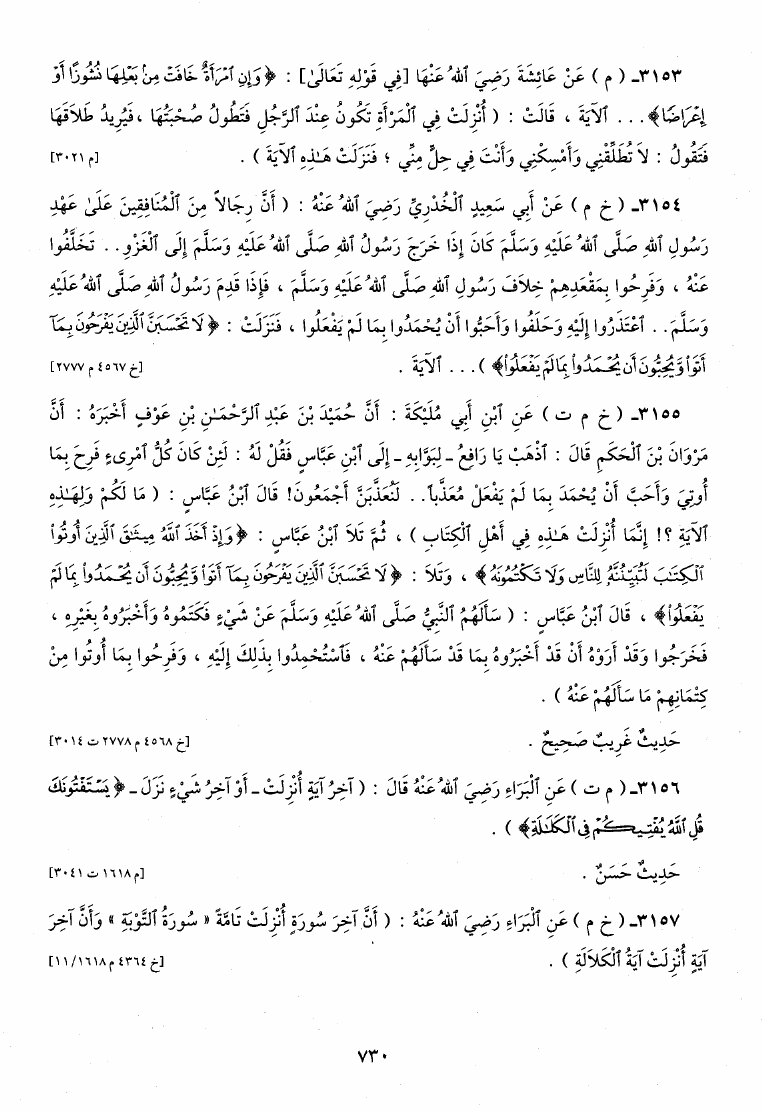 ٣١٥٣ـ ( م ) عَنْ عَائِشَةَ رَضِيَ ٱللهُ عَنْهَا [فِي قَوْلِهِ تَعَالَىٰ] : ﴿ وَإِنِ ٱمْرَأَةٌ خَافَتْ مِنۢ بَعْلِهَا نُشُوزًا أَوْ
إِعْرَاضًا﴾ . . . ٱلآيَةَ ، قَالَتْ : ( أُنْزِلَتْ فِي ٱلْمَرْأَةِ تَكُونُ عِنْدَ ٱلرَّجُلِ فَتَطُولُ صُحْبَتُهَا ، فَيُرِيدُ طَلاَقَهَا
فَتَقُولُ : لاَ تُطَلِّقْنِي وَأَمْسِكْنِي وَأَنْتَ فِي حِلٍّ مِنِّي ؛ فَنَزَلَتْ هَـٰذِهِ ٱلآيَةَ ) . [م ٣٠٢١]
٣١٥٤ـ ( خ م ) عَنْ أَبِي سَعِيدٍ ٱلْخُدْرِيِّ رَضِيَ ٱللهُ عَنْهُ : ( أَنَّ رِجَالاً مِنَ ٱلْمُنَافِقِينَ عَلَىٰ عَهْدِ
رَسُولِ ٱللهِ صَلَّى ٱللهُ عَلَيْهِ وَسَلَّمَ كَانَ إِذَا خَرَجَ رَسُولُ ٱللهِ صَلَّى ٱللهُ عَلَيْهِ وَسَلَّمَ إِلَى ٱلْغَزْوِ . . تَخَلَّفُوا
عَنْهُ ، وَفَرِحُوا بِمَقْعَدِهِمْ خِلاَفَ رَسُولِ ٱللهِ صَلَّى ٱللهُ عَلَيْهِ وَسَلَّمَ ، فَإِذَا قَدِمَ رَسُولُ ٱللهِ صَلَّى ٱللهُ عَلَيْهِ
وَسَلَّمَ . . ٱعْتَذَرُوا إِلَيْهِ وَحَلَفُوا وَأَحَبُّوا أَنْ يُحْمَدُوا بِمَا لَمْ يَفْعَلُوا ، فَنَزَلَتْ : ﴿ لَا تَحْسَبَنَّ ٱلَّذِينَ يَفْرَحُونَ بِمَآ
أَتَوا۟ وَّيُحِبُّونَ أَن يُحْمَدُوا۟ بِمَا لَمْ يَفْعَلُوا۟﴾ ) . . . ٱلآيَةَ . [خ ٤٥٦٧ م ٢٧٧٧]
٣١٥٥ـ ( خ م ت ) عَنِ ٱبْنِ أَبِي مُلَيْكَةَ : أَنَّ حُمَيْدَ بْنَ عَبْدِ ٱلرَّحْمَـٰنِ بْنِ عَوْفٍ أَخْبَرَهُ : أَنَّ
مَرْوَانَ بْنَ ٱلْحَكَمِ قَالَ : ٱذْهَبْ يَا رَافِعُ ـ لِبَوَّابِهِ ـ إِلَى ٱبْنِ عَبَّاسٍ فَقُلْ لَهُ : لَئِنْ كَانَ كُلُّ ٱمْرِىءٍ فَرِحَ بِمَا
أُوتِيَ وَأَحَبَّ أَنْ يُحْمَدَ بِمَا لَمْ يَفْعَلْ مُعَذَّباً . . لَنُعَذَّبَنَّ أَجْمَعُونَ! قَالَ ٱبْنُ عَبَّاسٍ : ( مَا لَكُمْ وَلِهَـٰذِهِ
ٱلآيَةِ ؟! إِنَّمَا أُنْزِلَتْ هَـٰذِهِ فِي أَهْلِ ٱلْكِتَابِ ) ، ثُمَّ تَلاَ ٱبْنُ عَبَّاسٍ : ﴿وَإِذْ أَخَذَ ٱللَّهُ مِيثَـٰقَ ٱلَّذِينَ أُوتُوا۟
ٱلْكِتَـٰبَ لَتُبَيِّنُنَّهُۥ لِلنَّاسِ وَلَا تَكْتُمُونَهُۥ﴾ ، وَتَلاَ : ﴿ لَا تَحْسَبَنَّ ٱلَّذِينَ يَفْرَحُونَ بِمَآ أَتَوا۟ وَّيُحِبُّونَ أَن يُحْمَدُوا۟ بِمَا لَمْ
يَفْعَلُوا۟﴾ ، قَالَ ٱبْنُ عَبَّاسٍ : ( سَأَلَهُمُ ٱلنَّبِيُّ صَلَّى ٱللهُ عَلَيْهِ وَسَلَّمَ عَنْ شَيْءٍ فَكَتَمُوهُ وَأَخْبَرُوهُ بِغَيْرِهِ ،
فَخَرَجُوا وَقَدْ أَرَوْهُ أَنْ قَدْ أَخْبَرُوهُ بِمَا قَدْ سَأَلَهُمْ عَنْهُ ، فَٱسْتُحْمِدُوا بِذَلِكَ إِلَيْهِ ، وَفَرِحُوا بِمَا أُوتُوا مِنْ
كِتْمَانِهِمْ مَا سَأَلَهُمْ عَنْهُ ) .
حَدِيثٌ غَرِيبٌ صَحِيحٌ . [خ ٤٥٦٨ م ٢٧٧٨ ت ٣٠١٤]
٣١٥٦ـ ( م ت ) عَنِ ٱلْبَرَاءِ رَضِيَ ٱللهُ عَنْهُ قَالَ : ( آخِرُ آيَةٍ أُنْزِلَتْ ـ أَوْ آخِرُ شَيْءٍ نَزَلَ ـ ﴿ يَسْتَفْتُونَكَ
قُلِ ٱللَّهُ يُفْتِيكُمْ فِى ٱلْكَلَـٰلَةِ﴾ ) .
حَدِيثٌ حَسَنٌ . [م ١٦١٨ ت ٣٠٤١]
٣١٥٧ـ ( خ م ) عَنِ ٱلْبَرَاءِ رَضِيَ ٱللهُ عَنْهُ : ( أَنَّ آخِرَ سُورَةٍ أُنْزِلَتْ تَامَّةً « سُورَةُ ٱلتَّوْبَةِ » وَأَنَّ آخِرَ
آيَةٍ أُنْزِلَتْ آيَةُ ٱلْكَلاَلَةِ ) . [خ ٤٣٦٤ م ١٦١٨/١١]
٧٣٠